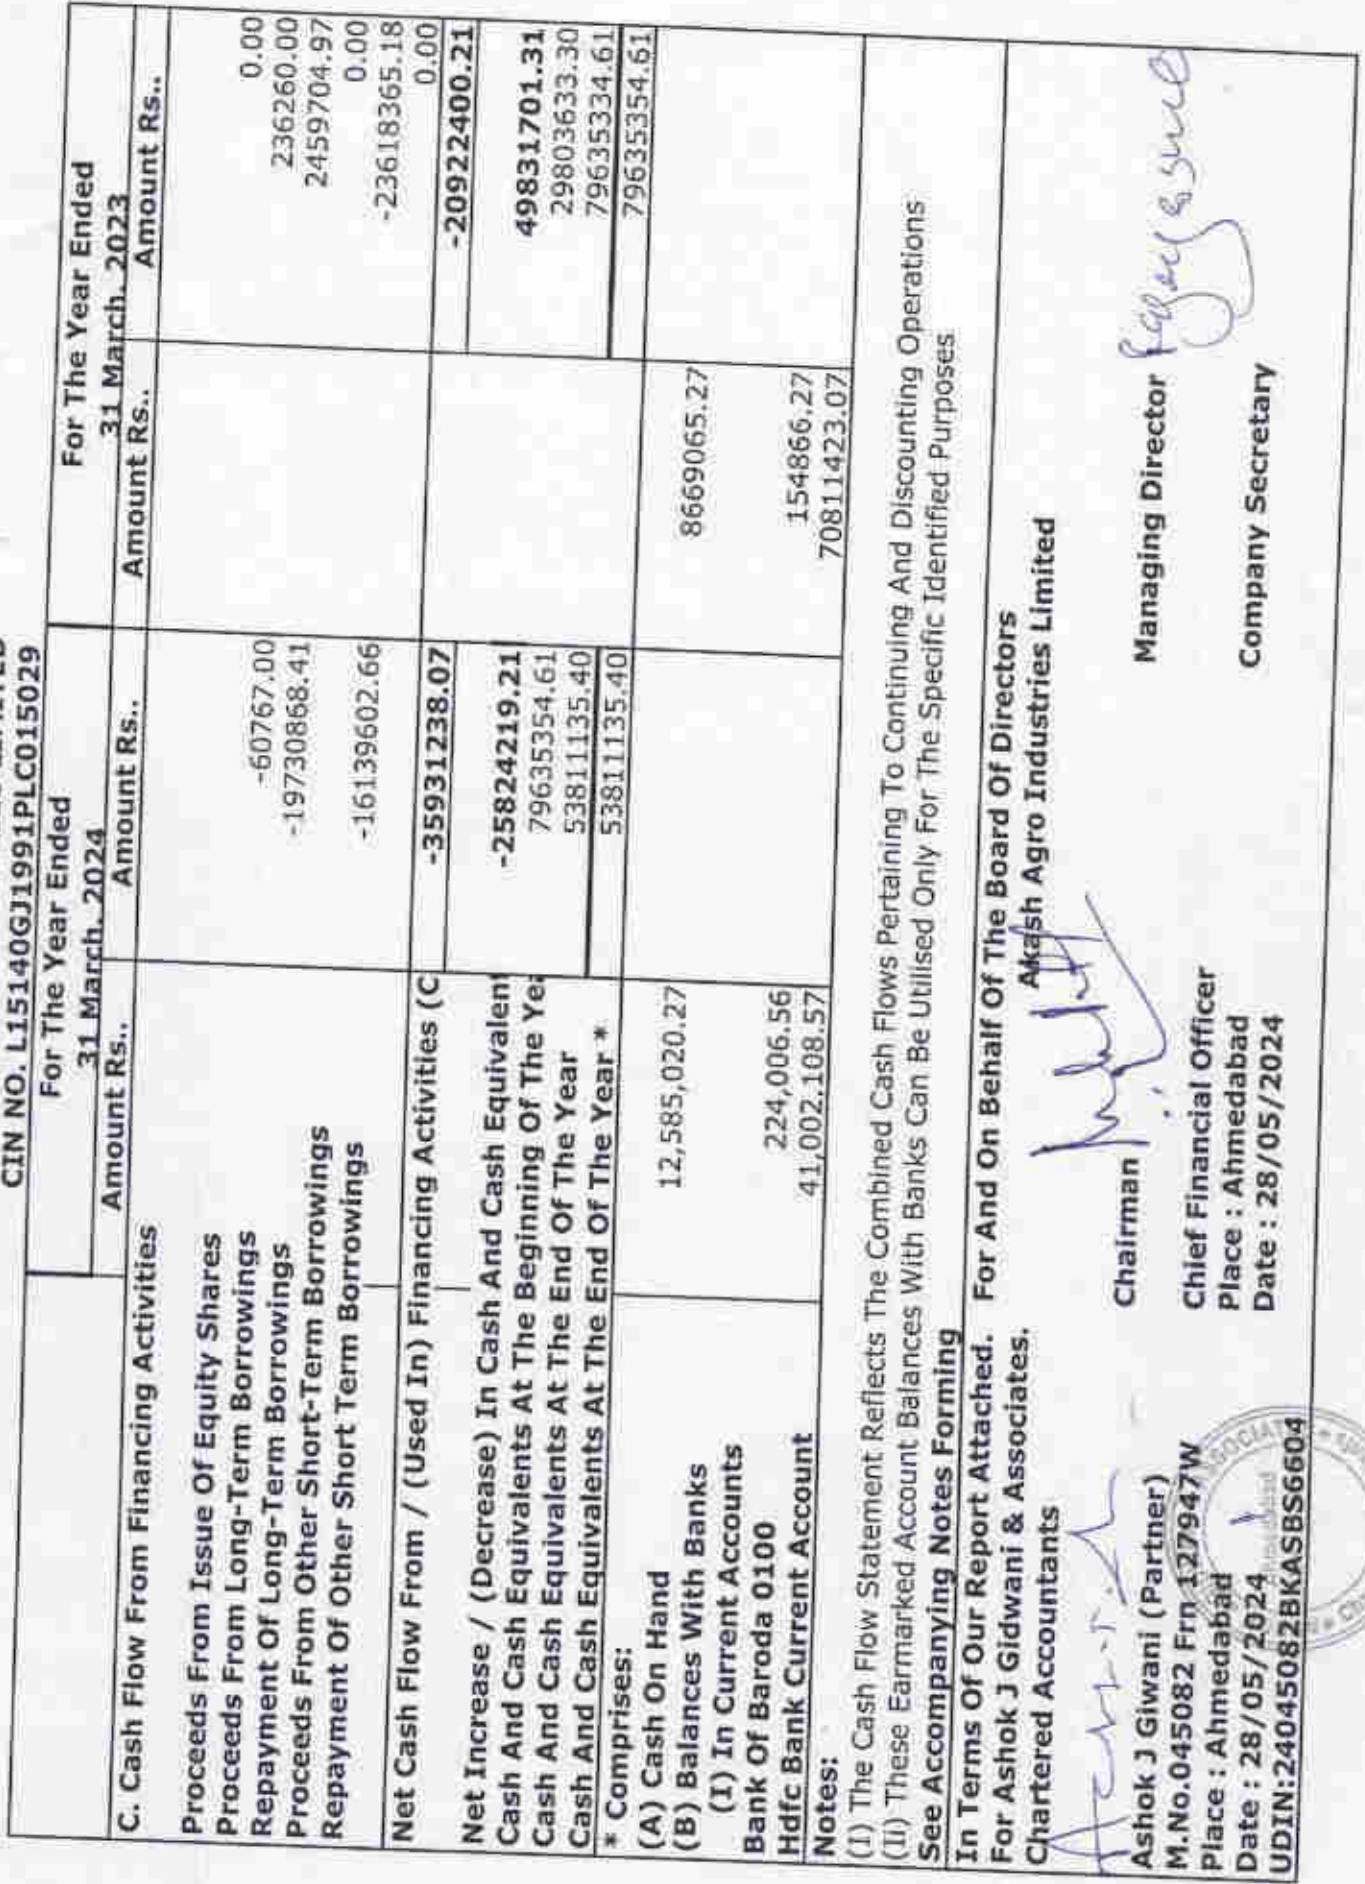 CIN NO. L15140GJ1991PLC015029
For The Year Ended For The Year Ended
31 March, 2024 31 March, 2023
Amount Rs.. Amount Rs.. Amount Rs.. Amount Rs..
C. Cash Flow From Financing Activities
Proceeds From Issue Of Equity Shares 0.00
Proceeds From Long-Term Borrowings -60767.00 236260.00
Repayment Of Long-Term Borrowings -19730868.41 2459704.97
Proceeds From Other Short-Term Borrowings 0.00
Repayment Of Other Short Term Borrowings -16139602.66 -23618365.18
0.00
Net Cash Flow From / (Used In) Financing Activities (C -35931238.07 -20922400.21
Net Increase / (Decrease) In Cash And Cash Equivalent -25824219.21 49831701.31
Cash And Cash Equivalents At The Beginning Of The Yea 79635354.61 29803633.30
Cash And Cash Equivalents At The End Of The Year 53811135.40 79635334.61
Cash And Cash Equivalents At The End Of The Year * 53811135.40 79635354.61
* Comprises:
(A) Cash On Hand 12,585,020.27 8669065.27
(B) Balances With Banks
(I) In Current Accounts
Bank Of Baroda 0100 224,006.56 154866.27
Hdfc Bank Current Account 41,002,108.57 70811423.07
Notes:
(I) The Cash Flow Statement Reflects The Combined Cash Flows Pertaining To Continuing And Discounting Operations
(Ii) These Earmarked Account Balances With Banks Can Be Utilised Only For The Specific Identified Purposes
See Accompanying Notes Forming
In Terms Of Our Report Attached. For And On Behalf Of The Board Of Directors
For Ashok J Gidwani & Associates. Akash Agro Industries Limited
Chartered Accountants
Chairman Managing Director
Ashok J Giwani (Partner)
M.No.045082 Frn 127947W Chief Financial Officer
Place : Ahmedabad Place : Ahmedabad Company Secretary
Date : 28/05/2024 Date : 28/05/2024
UDIN:24045082BKASBS6604